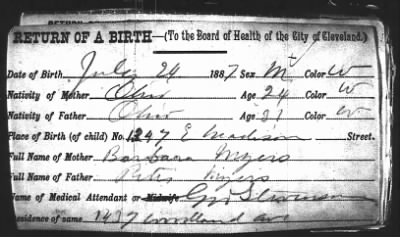 RETURN OF A BIRTH—(To the Board of Health of the City of Cleveland.)
Date of Birth July 24 1887 Sex M Color W
Nativity of Mother Ohio Age 24 Color W
Nativity of Father Ohio Age 31 Color W
Place of Birth (of child) No. 1247 E Madison Street.
Full Name of Mother Barbara Myers
Full Name of Father Peter Myers
Name of Medical Attendant or Midwife Geo
Residence of same 1437 Woodland Ave